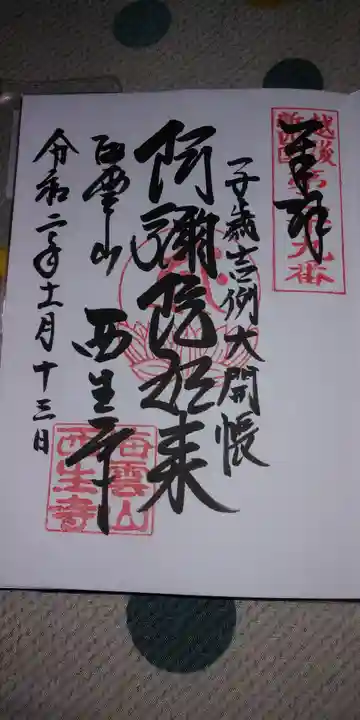 奉拝
越後
新西国
第十九番
子歳吉例大開帳
阿彌陀如来
海雲山
西生寺
令和二年十一月十三日
海雲山
西生寺